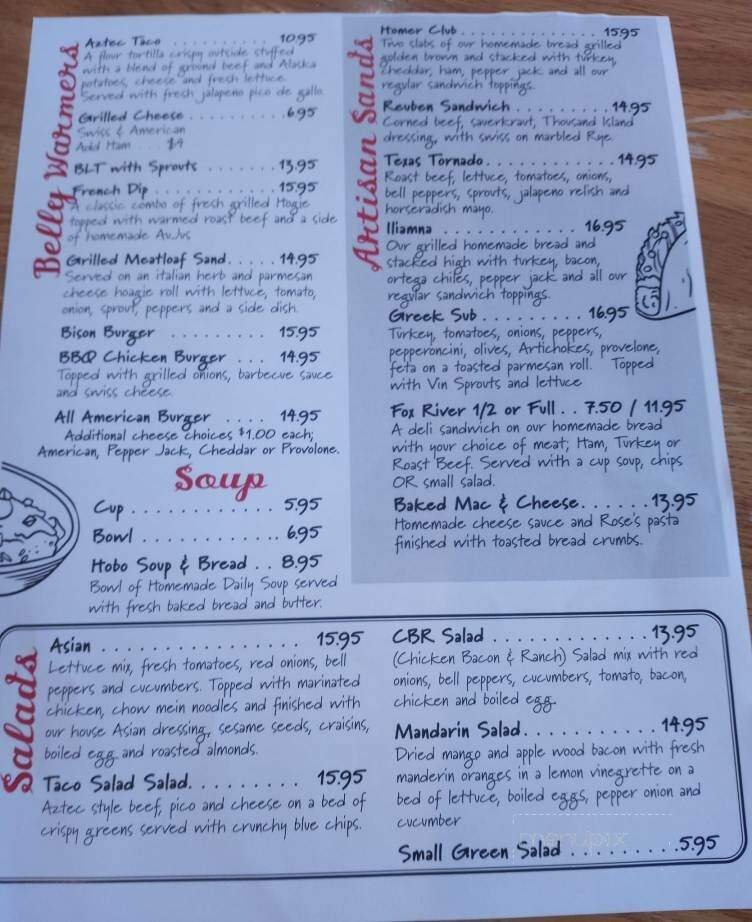 Belly Warmers
Aztec Taco . . . . . . . . . . . 10.95
A flour tortilla crispy outside stuffed
with a blend of ground beef and Alaska
potatoes, cheese and fresh lettuce.
Served with fresh jalapeno pico de gallo.
Grilled Cheese . . . . . . . . . 6.95
Swiss & American
Add Ham . . . $4
BLT with Sprouts . . . . . . . 13.95
French Dip . . . . . . . . . . . . 15.95
A classic combo of fresh grilled Hogie
topped with warmed roast beef and a side
of homemade AuJus
Grilled Meatloaf Sand. . . . . 14.95
Served on an italian herb and parmesan
cheese hoagie roll with lettuce, tomato,
onion, sprout, peppers and a side dish.
Bison Burger . . . . . . . . . 15.95
BBQ Chicken Burger . . . 14.95
Topped with grilled onions, barbecue sauce
and swiss cheese.
All American Burger . . . . 14.95
Additional cheese choices $1.00 each;
American, Pepper Jack, Cheddar or Provolone.
Soup
Cup . . . . . . . . . . . . . 5.95
Bowl . . . . . . . . . . . . . 6.95
Hobo Soup & Bread . . 8.95
Bowl of Homemade Daily Soup served
with fresh baked bread and butter.
Artisan Sands
Homer Club . . . . . . . . . . . . . . . 15.95
Two slabs of our homemade bread grilled
golden brown and stacked with turkey,
cheddar, ham, pepper jack and all our
regular sandwich toppings.
Reuben Sandwich . . . . . . . . . 14.95
Corned beef, sauerkraut, Thousand Island
dressing, with swiss on marbled Rye.
Texas Tornado. . . . . . . . . . . . 14.95
Roast beef, lettuce, tomatoes, onions,
bell peppers, sprouts, jalapeno relish and
horseradish mayo.
Iliamna . . . . . . . . . . . . . 16.95
Our grilled homemade bread and
stacked high with turkey, bacon,
ortega chiles, pepper jack and all our
regular sandwich toppings.
Greek Sub . . . . . . . . . 16.95
Turkey, tomatoes, onions, peppers,
pepperoncini, olives, Artichokes, provelone,
feta on a toasted parmesan roll. Topped
with Vin Sprouts and lettuce
Fox River 1/2 or Full . . 7.50 / 11.95
A deli sandwich on our homemade bread
with your choice of meat; Ham, Turkey or
Roast Beef. Served with a cup soup, chips
OR small salad.
Baked Mac & Cheese. . . . . . 13.95
Homemade cheese sauce and Rose's pasta
finished with toasted bread crumbs.
Salads
Asian . . . . . . . . . . . . . . . . . . 15.95
Lettuce mix, fresh tomatoes, red onions, bell
peppers and cucumbers. Topped with marinated
chicken, chow mein noodles and finished with
our house Asian dressing, sesame seeds, craisins,
boiled egg and roasted almonds.
Taco Salad Salad. . . . . . . . . 15.95
Aztec style beef, pico and cheese on a bed of
crispy greens served with crunchy blue chips.
CBR Salad . . . . . . . . . . . . . . 13.95
(Chicken Bacon & Ranch) Salad mix with red
onions, bell peppers, cucumbers, tomato, bacon,
chicken and boiled egg.
Mandarin Salad. . . . . . . . . . . . 14.95
Dried mango and apple wood bacon with fresh
manderin oranges in a lemon vinegrette on a
bed of lettuce, boiled eggs, pepper onion and
cucumber
Small Green Salad . . . . . . . . . . 5.95
menupix